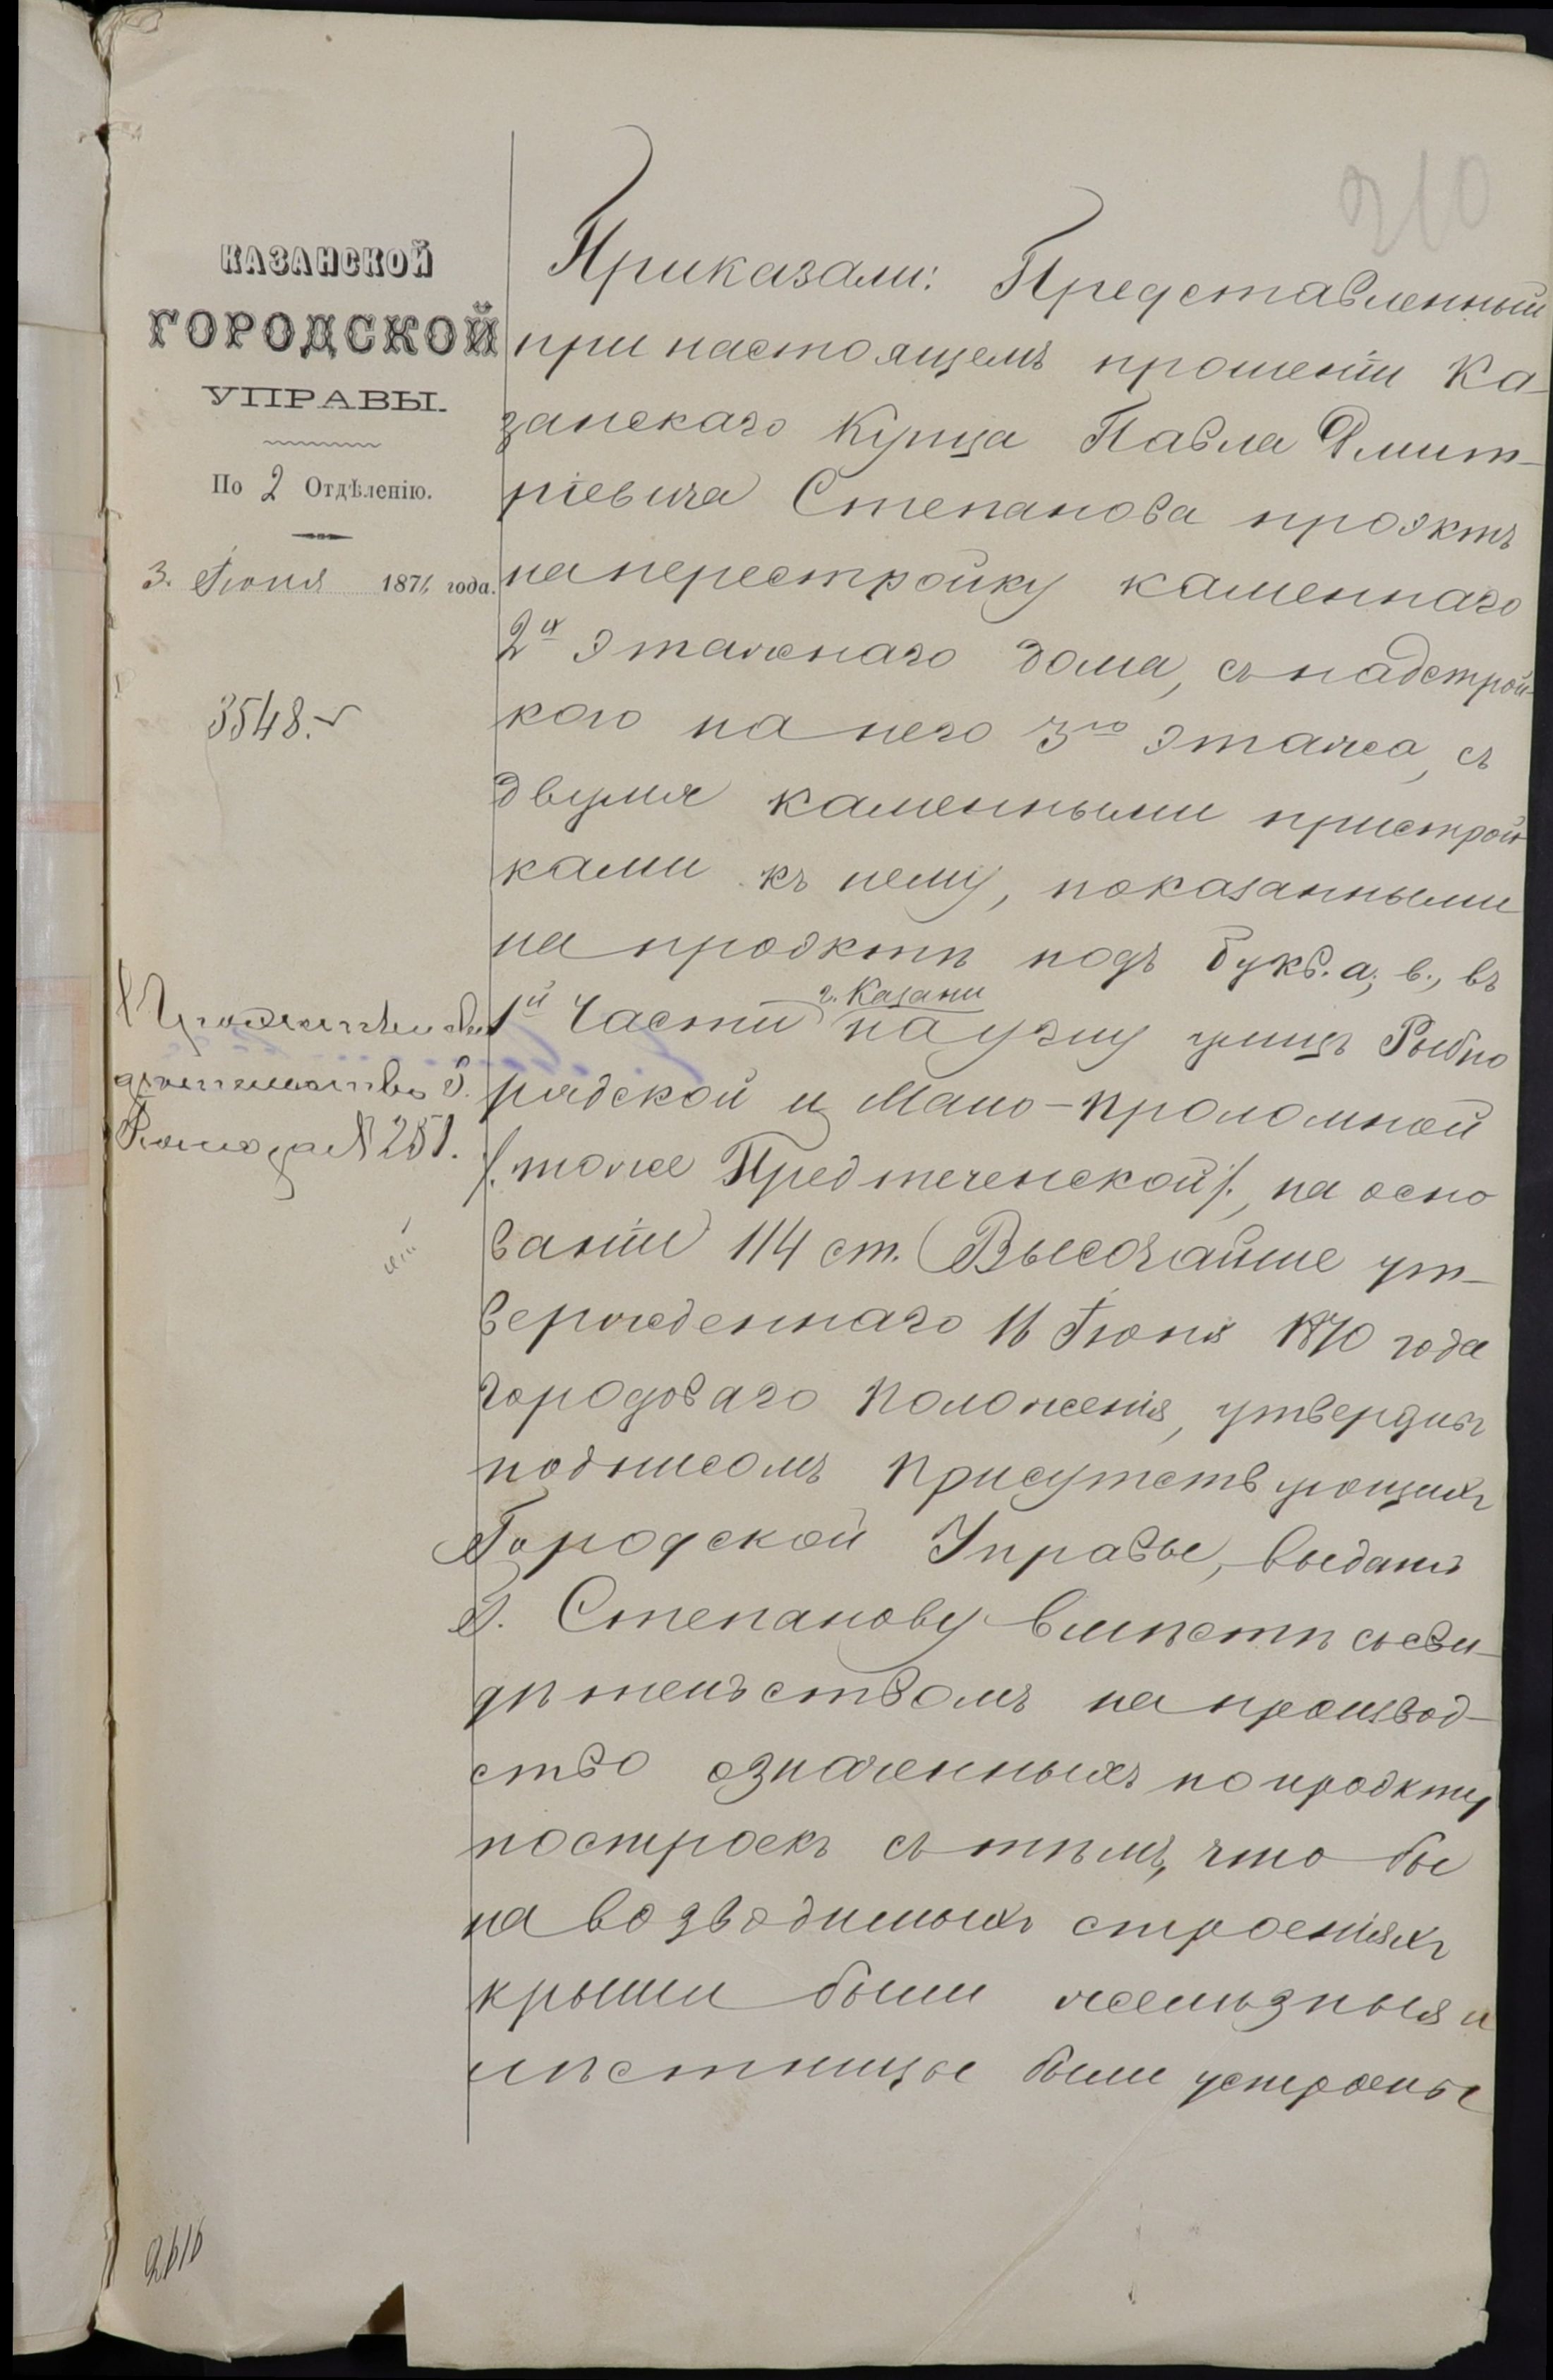 210
КАЗАНСКОЙ
ГОРОДСКОЙ
УПРАВЫ.
По 2 Отдѣленію.
3. Іюня 1876 года.
3548.
№ 251.
Приказали: Представленный
при настоящемъ прошеніи Ка-
занскаго Купца Павла Дмит-
ріевича Степанова проэктъ
на перестройку каменнаго
2х этажнаго дома, съ надстрой-
кою на него 3го этажа, съ
двумя каменными пристрой-
ками къ нему, показанными
на проэктѣ подъ букв. а, в., въ
1й Части г. Казани на углу улицъ Рыбно
рядской и Мало-проломной
/. тоже Предтеченской /., на осно
ваніи 114 ст. Высочайше ут-
вержденнаго 16 Іюня 1870 года
городоваго положенія, утвердивъ
подписомъ присутствующихъ
Городской Управы, выдать
Г. Степанову вмѣстѣ съ сви-
дѣтельствомъ на производ-
ство означенныхъ по проэкту
построекъ съ тѣмъ, что бы
на возводимыхъ строеніяхъ
крыши были желѣзныя и
лѣстницы были устроены
2616